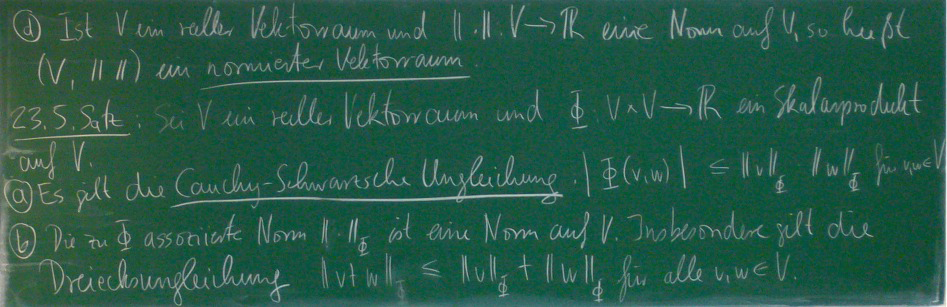 ⓓ Ist V ein reeller Vektorraum und ‖.‖: V → ℝ eine Norm auf V, so heißt
(V, ‖ ‖) ein normierter Vektorraum.
23.5. Satz: Sei V ein reeller Vektorraum und Φ: V×V → ℝ ein Skalarprodukt
auf V.
ⓐ Es gilt die Cauchy-Schwartzsche Ungleichung: |Φ(v,w)| ≤ ‖v‖_Φ · ‖w‖_Φ für v,w∈V
ⓑ Die zu Φ assoziierte Norm ‖·‖_Φ ist eine Norm auf V. Insbesondere gilt die
Dreiecksungleichung ‖v+w‖_Φ ≤ ‖v‖_Φ + ‖w‖_Φ für alle v,w∈V.